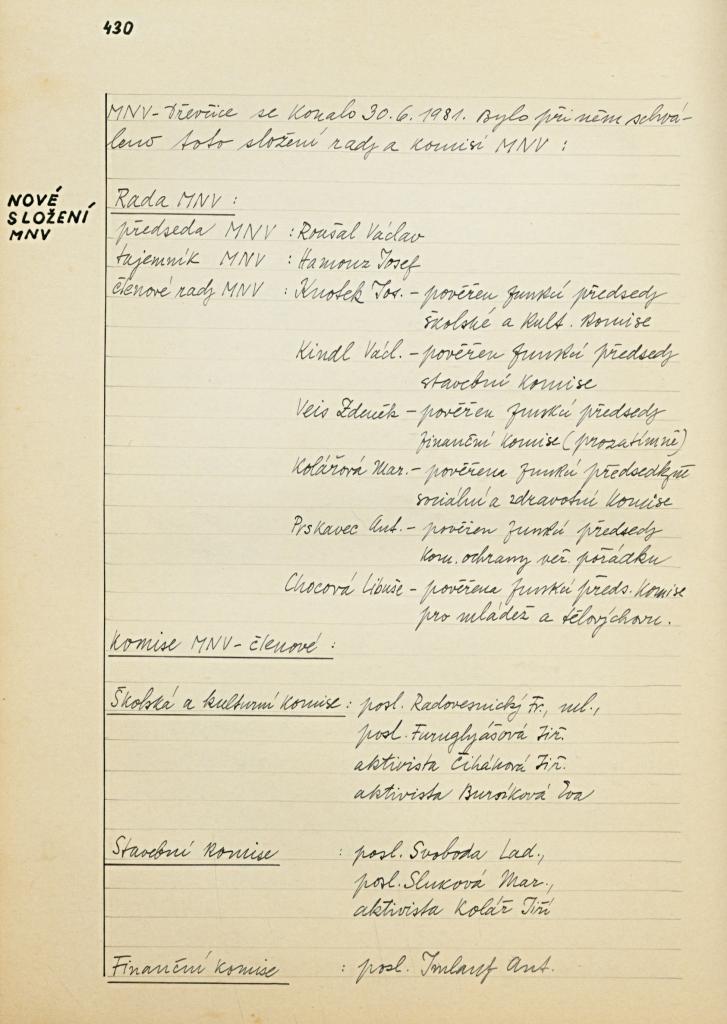 430
MNV-Dřevčice se konalo 30.6.1981. Bylo při něm schvá-
leno toto složení rady a komisí MNV :
NOVÉ
SLOŽENÍ
MNV
Rada MNV :
předseda MNV : Roušal Václav
tajemník MNV : Hamouz Josef
členové rady MNV : Knotek Jos. – pověřen funkcí předsedy
školské a kult. komise
Kindl Václ. – pověřen funkcí předsedy
stavební komise
Veis Zdeněk – pověřen funkcí předsedy
finanční komise (prozatímně)
Kolářová Mar. – pověřena funkcí předsedkyně
sociální a zdravotní komise
Prskavec Ant. – pověřen funkcí předsedy
kom. ochrany veř. pořádku
Chocová Libuše – pověřena funkcí předs. komise
pro mládež a tělovýchovu.
Komise MNV – členové :
Školská a kulturní komise : posl. Radovesnický Fr., ml.,
posl. Jiř.
aktivista Čiháková Jiř.
aktivista Bursíková Eva
Stavební komise : posl. Svoboda Lad.,
posl. Sluková Mar.,
aktivista Kolář Jiří
Finanční komise : posl. Imlauf Ant.